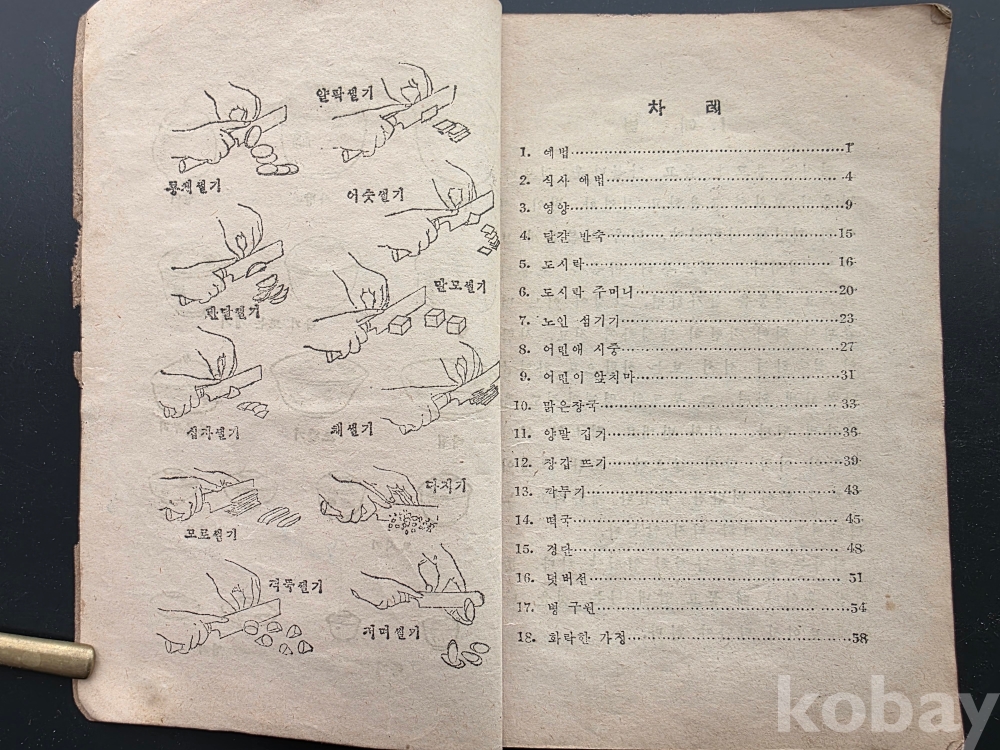 얄팍썰기
통째썰기
어슷썰기
반달썰기
말모썰기
십자썰기
채썰기
다지기
모르썰기
걱뚝썰기
저며썰기
차 례
1. 예법 1
2. 식사 예법 4
3. 영양 9
4. 달걀 반숙 15
5. 도시락 16
6. 도시락 주머니 20
7. 노인 섬기기 23
8. 어린애 시중 27
9. 어린이 앞치마 31
10. 맑은장국 33
11. 양말 깁기 36
12. 장갑 뜨기 39
13. 깍두기 43
14. 떡국 45
15. 경단 48
16. 덧버선 51
17. 병 구원 54
18. 화락한 가정 58
kobay